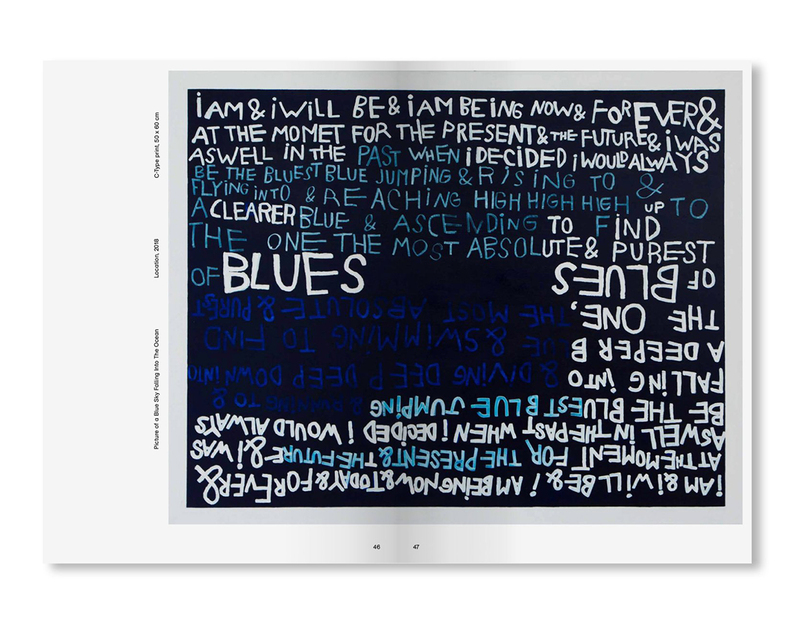 iAM & iWiLL BE & iAM BEiNG NOW & FOREVER &
AT THE MOMET FOR THE PRESENT & THE FUTURE & i WAS
ASWELL iN THE PAST WHEN i DECiDED i WOULD ALWAYS
BE THE BLUEST BLUE JUMPING & RISING TO &
FLYING INTO & REACHING HIGH HIGH HIGH UP TO
A CLEARER BLUE & ASCENDING TO FIND
THE ONE THE MOST ABSOLUTE & PUREST
OF BLUES
iAM & i WiLL BE & i AM BEiNG NOW & TODAY & FOREVER &
AT THE MOMENT FOR THE PRESENT & THE FUTURE & i WAS
ASWELL iN THE PAST WHEN i DECiDED i WOULD ALWAYS
BE THE BLUEST BLUE JUMPiNG & RUNNING TO &
FALLiNG iNTO & DIVING DEEP DEEP DOWN INTO
A DEEPER BLUE & SWIMMING TO FIND
THE ONE, THE MOST ABSOLUTE & PUREST
OF BLUES
Picture of a Blue Sky Falling Into The Ocean
Location, 2018
C-Type print, 50 x 60 cm
46
47